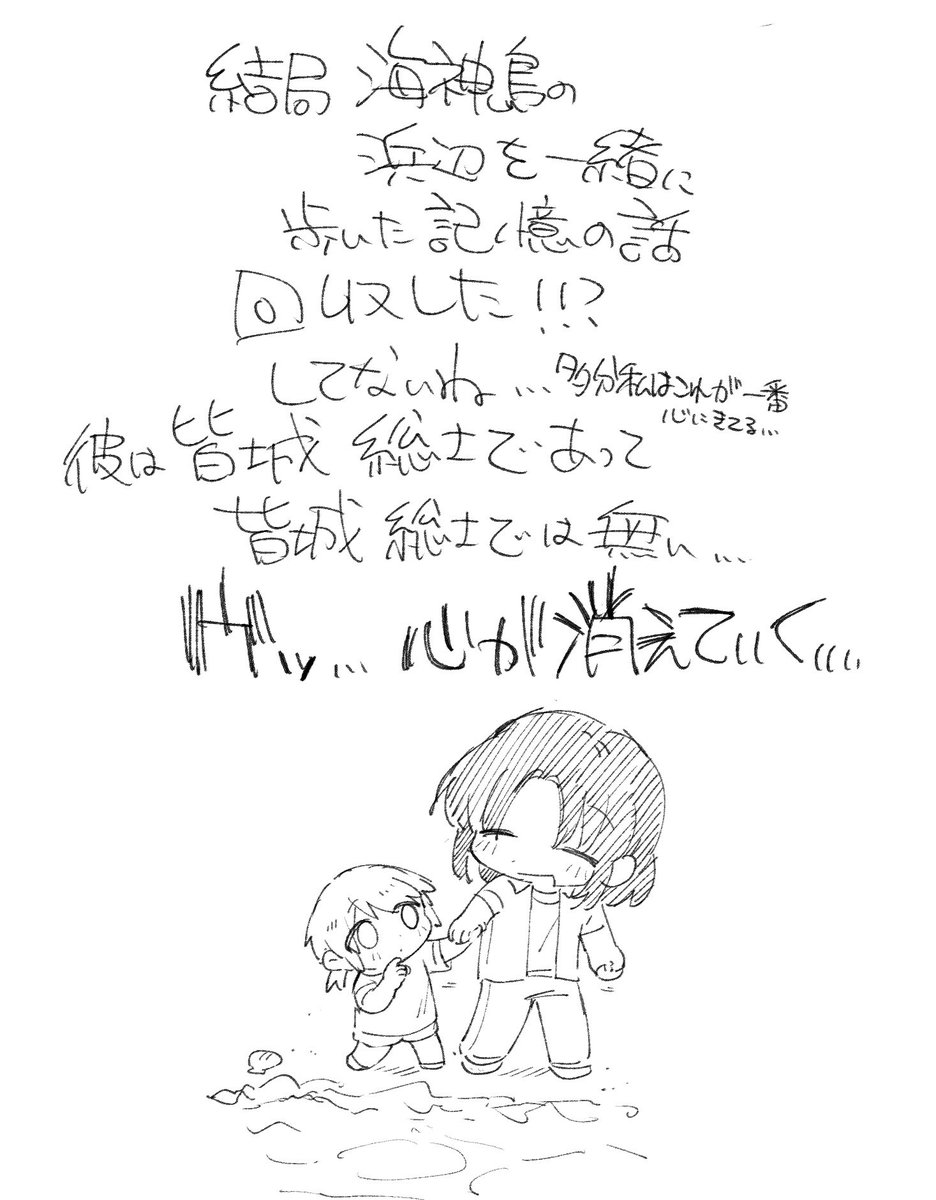 結局 海神島の
浜辺を一緒に
歩いた記憶の話
回収した!!?
してないね...
多分私はこれが一番
心にきてる...
彼は皆城 総士であって
皆城 総士では無い...
ガッ... 心が消えていく....